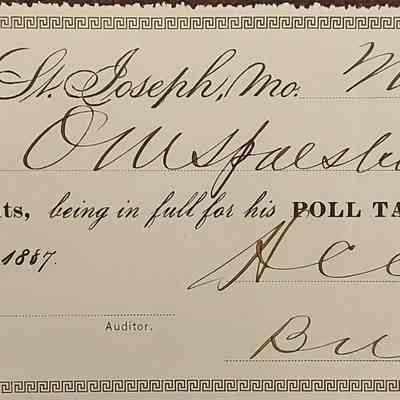 St. Joseph, Mo. M
O M Spaesb
ts, being in full for his POLL TA
1887.
Auditor.
Bu